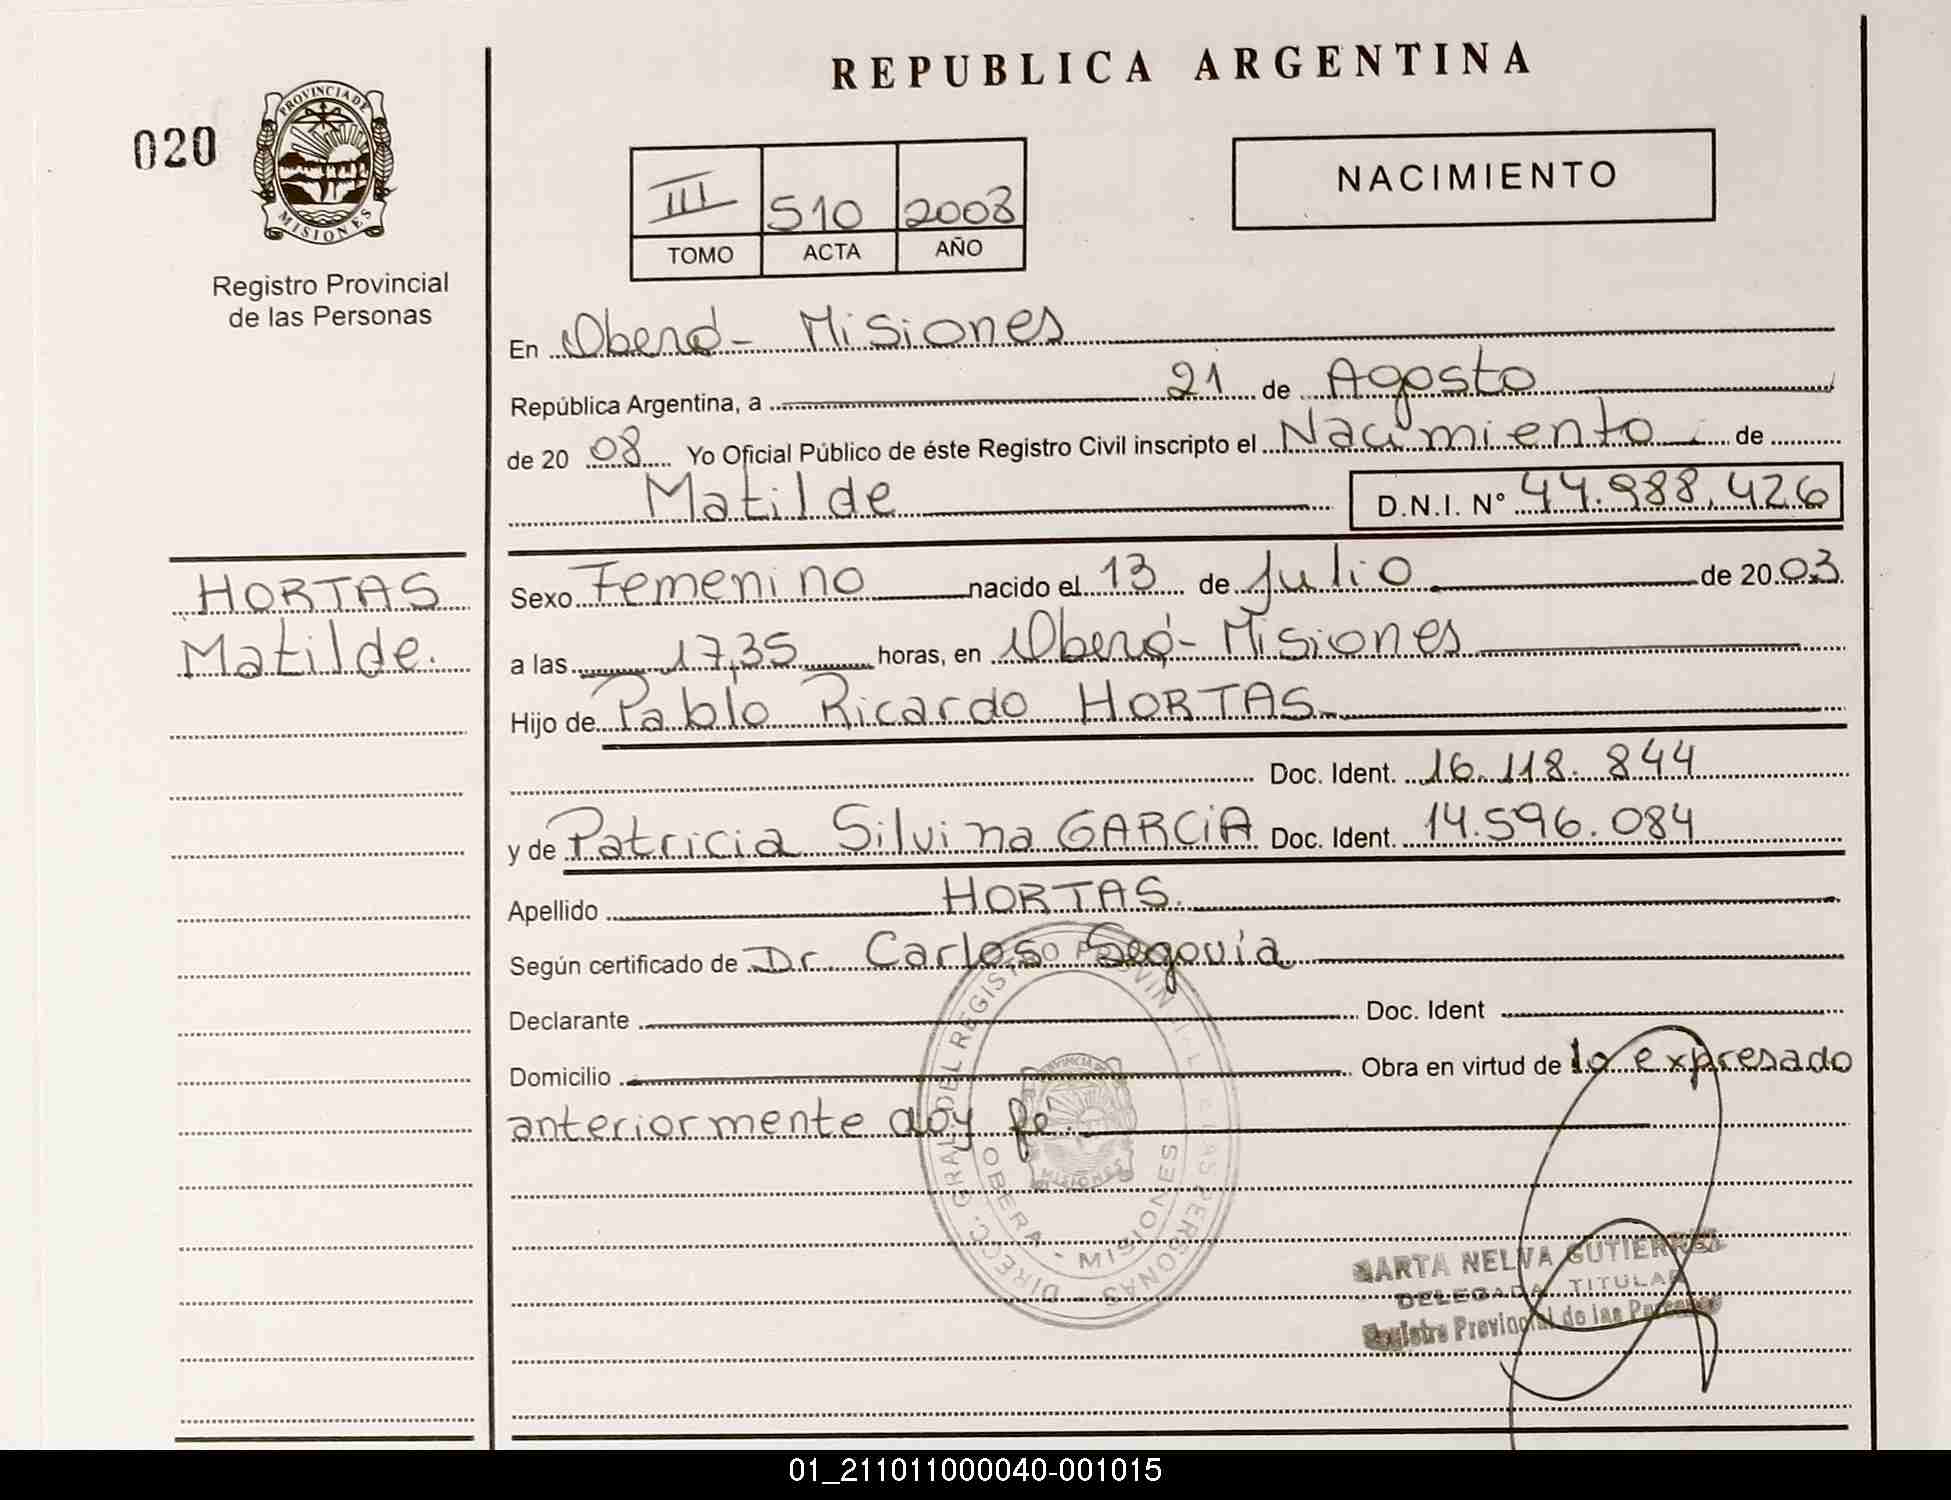 REPUBLICA ARGENTINA
020
PROVINCIA DE
MISIONES
Registro Provincial
de las Personas
III 510 2008
TOMO ACTA AÑO
NACIMIENTO
En Oberá - Misiones
República Argentina, a 21 de Agosto
de 20 08 Yo Oficial Público de éste Registro Civil inscripto el Nacimiento de
Matilde D.N.I. Nº 44.988.426
HORTAS
Matilde.
Sexo Femenino nacido el 13 de Julio de 20 03
a las 17,35 horas, en Oberá - Misiones
Hijo de Pablo Ricardo HORTAS
Doc. Ident. 16.118.844
y de Patricia Silvina GARCiA Doc. Ident. 14.596.084
Apellido HORTAS.
Según certificado de Dr Carlos Segovia
Declarante Doc. Ident
Domicilio Obra en virtud de lo expresado
anteriormente doy fe.
DIRECC. GRAL. DEL REGISTRO PROVINCIAL DE LAS PERSONAS
PROVINCIA DE
MISIONES
OBERA - MISIONES
MARTA NELVA GUTIERREZ
DELEGADA TITULAR
Registro Provincial de las Personas
01_211011000040-001015